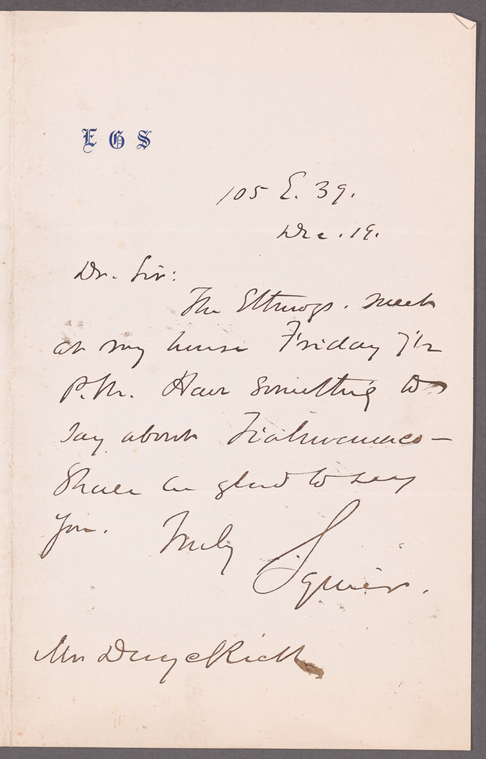 E G S
105 E. 39.
Dec. 19.
Dr. Sir:
The Ethnogs. meet
at my house Friday 7 1/2
P.M. Have something to
say about Tiahuanaco —
Shall be glad to see
you. Truly
Squier.
Mr Duyckick